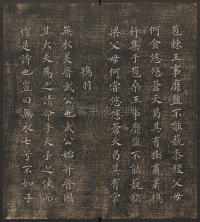 苞棘王事靡盬不能蓺黍稷父母
何食悠悠蒼天曷其有極肅肅鴇
行集于苞桑王事靡盬不能蓺稻
粱父母何嘗悠悠蒼天曷其有常
鴇羽
無衣美晉武公也武公始并晉國
其大夫為之請命乎天子之使而
作是詩也豈曰無衣七兮不如子